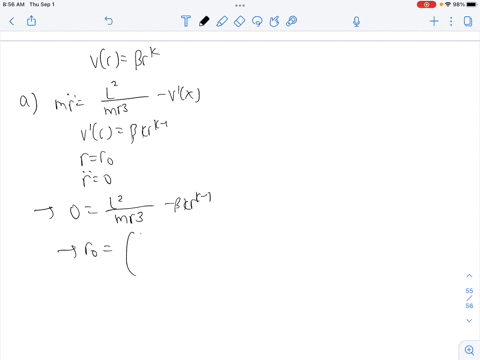 8:56 AM Thu Sep 1
98%
V(r) = βr^k
a) mr̈ = L²/mr3 - V'(x)
V'(r) = βkr^k-1
r = r0
r̈ = 0
→ 0 = L²/mr3 - βkr^k-1
→ r0 = (
55
/
56